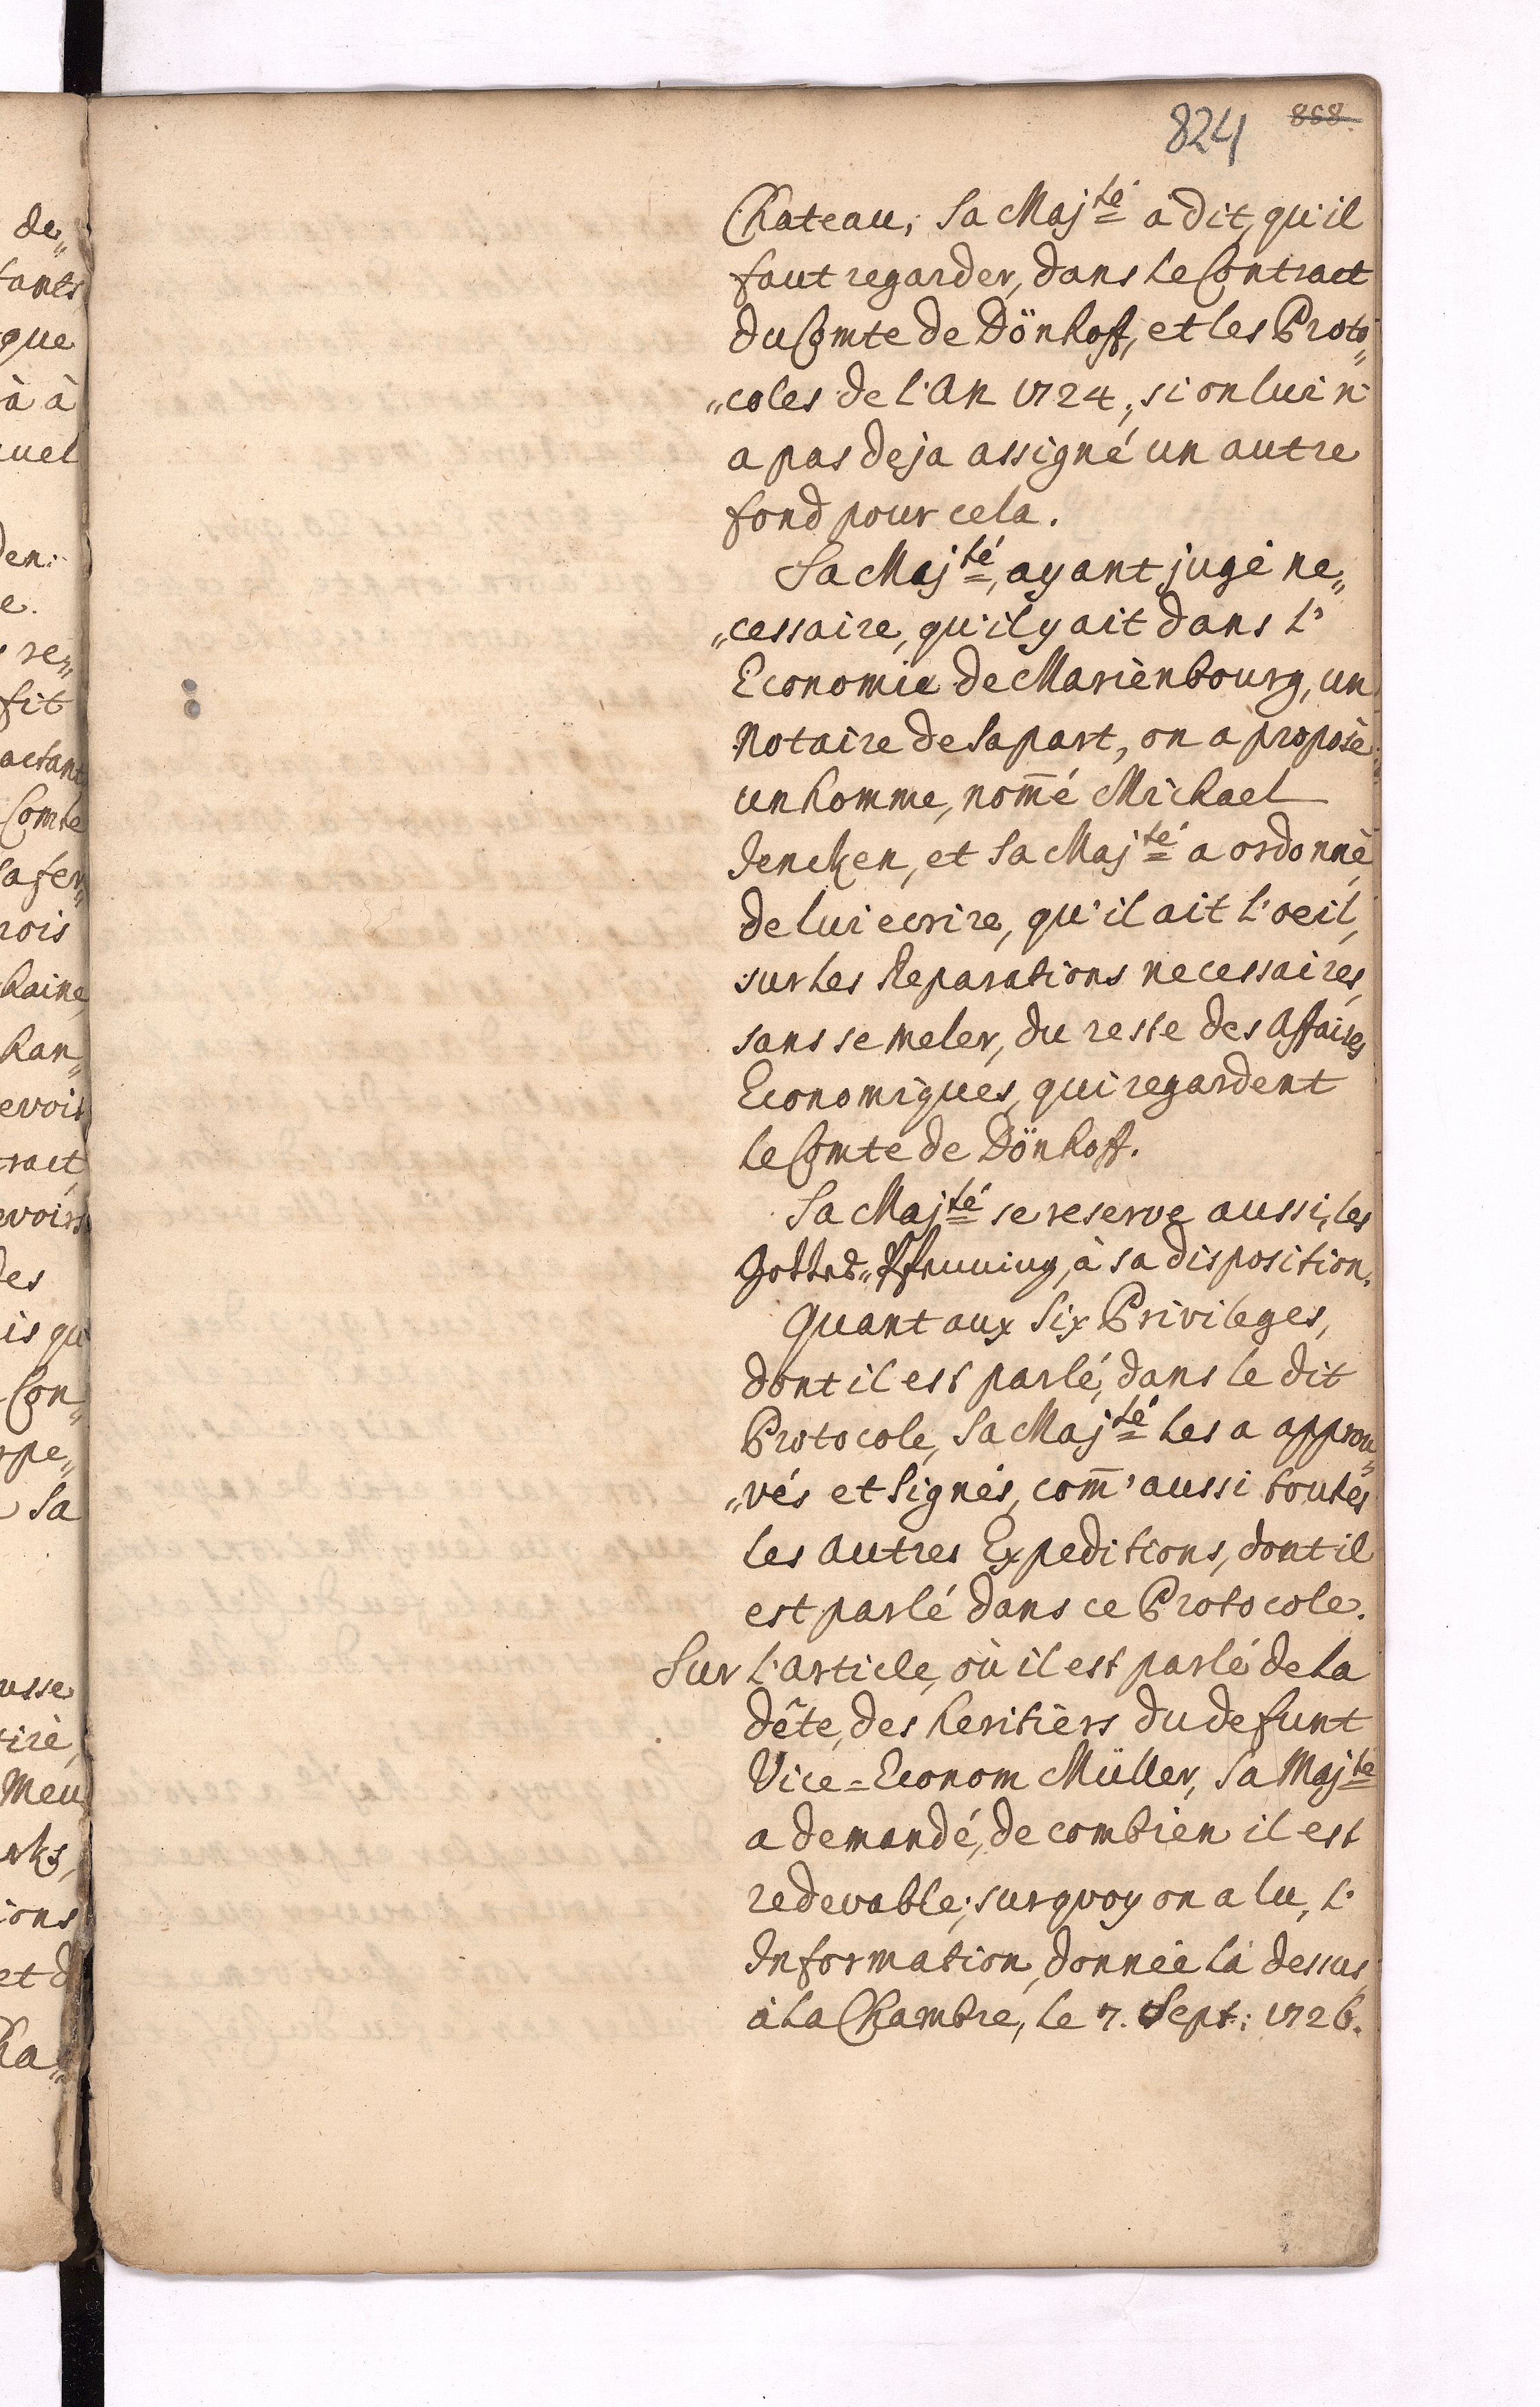 824 868.
Chateau; Sa Maj.té a dit, qu'il
faut regarder, dans le Contract
du Comte de Dönhoff, et les Proto„
„coles de l'An 1724, si on lui n'
a pas deja assigné un autre
fond pour cela.
Sa Maj.té, ayant jugé ne„
„cessaire, qu'il y ait dans l'
Economie de Marienbourg, un
Notaire de Sa part, on a proposé
un homme, nom̄é Michael
Jencken, et Sa Maj.té a ordonné,
de lui ecrire, qu'il ait l'oeil,
sur les Reparations necessaires,
sans se meler, du reste des Affaires
Economiques, qui regardent
le Comte de Dönhoff.
Sa Maj.té se reserve aussi, les
Gottes„Pfenning, à sa disposition.
Quant aux Six Privileges,
dont il est parlé, dans le dit
Protocole, Sa Maj.té les a approu„
„vés et Signés, com̄' aussi toutes
les autres Expeditions, dont il
est parlé dans ce Protocole.
Sur l'article, où il est parlé de la
dête, des heritiers du defunt
Vice=Econom Müller, Sa Maj.té
a demandé, de combien il est
redevable; surquoy on a lu, l'
Information, donnée là dessus,
à la Chambre, le 7. Sept: 1726.